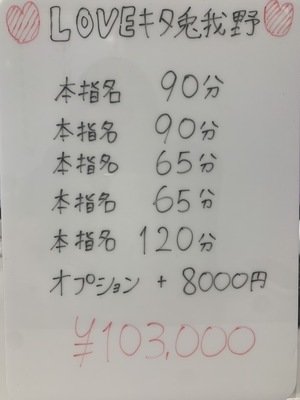 ♡ LOVEキタ兎我野 ♡
本指名 90分
本指名 90分
本指名 65分
本指名 65分
本指名 120分
オプション + 8000円
¥103,000